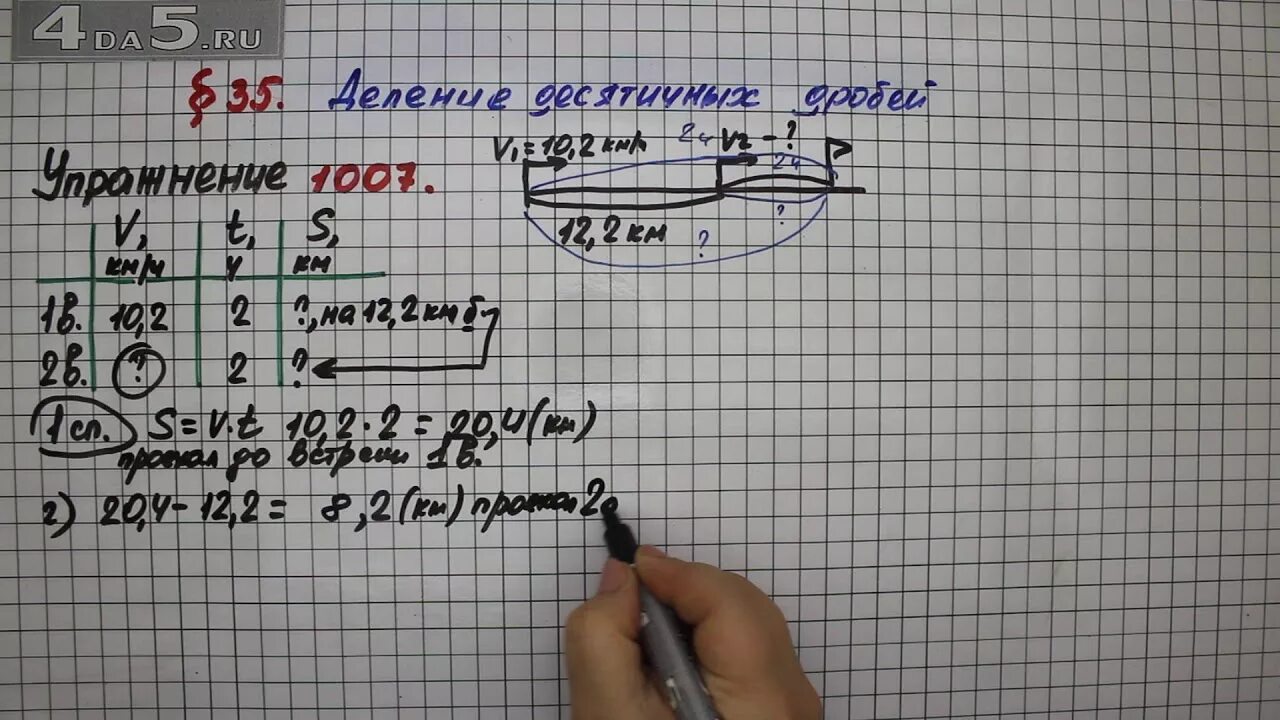 4DA5.RU
§ 35. Деление десятичных дробей
Упражнение 1007.
V₁ = 10,2 км/ч 2ч V2 - ?
2ч
12,2 км ? ?
V, t, S,
км/ч ч км
1в. 10,2 2 ?, на 12,2 км б
2в. ? 2 ?
1 сп. S = V · t 10,2 · 2 = 20,4 (км)
проехал до встречи 1в.
2) 20,4 - 12,2 = 8,2 (км) проехал 2